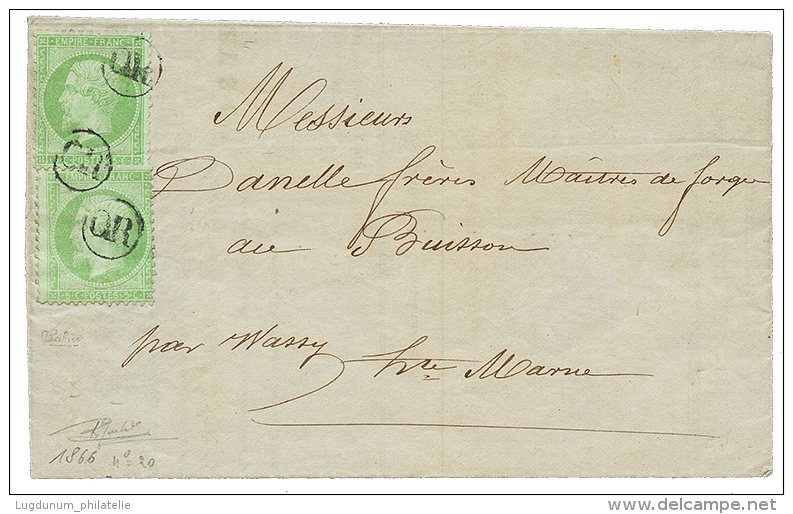 EMPIRE FRANC
OR
5 C POSTES 5 C
OR
EMPIRE FRANC
OR
5 C POSTES 5 C
Messieurs
Danelle frères Maîtres de forges
au Buisson
par Wassy
hte Marne
1866 n° = 20
Lugdunum_philatelie
delcampe.net